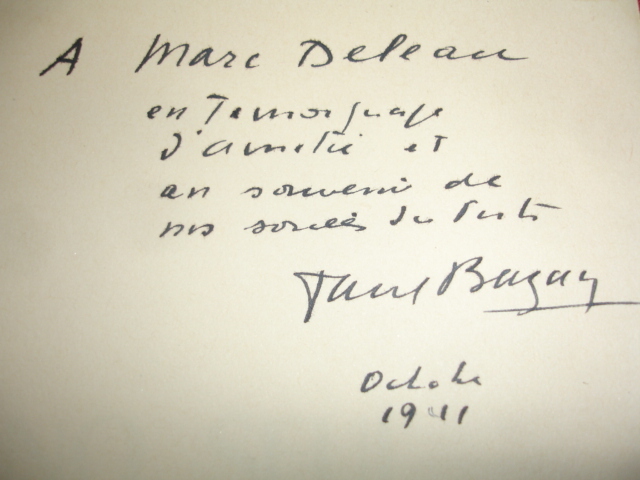 A Marc Deleau
en Temoignage
d'amitié et
en souvenir de
nos soirées du
Paul Bazan
Octobre
1941